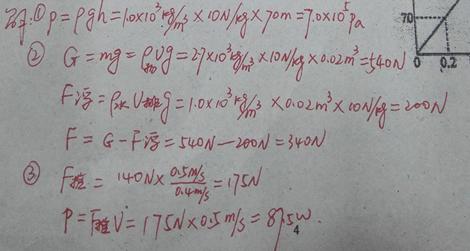 解:① p=ρgh=1.0×10³kg/m³×10N/kg×70m=7.0×10⁵Pa
② G=mg=ρ物Vg=2.7×10³kg/m³×10N/kg×0.02m³=540N
F浮=ρ水V排g=1.0×10³kg/m³×0.02m³×10N/kg=200N
F=G-F浮=540N-200N=340N
③ F推=140N×0.5m/s/0.4m/s=175N
P=F推V=175N×0.5m/s=87.5W.
70
0 0.2
4